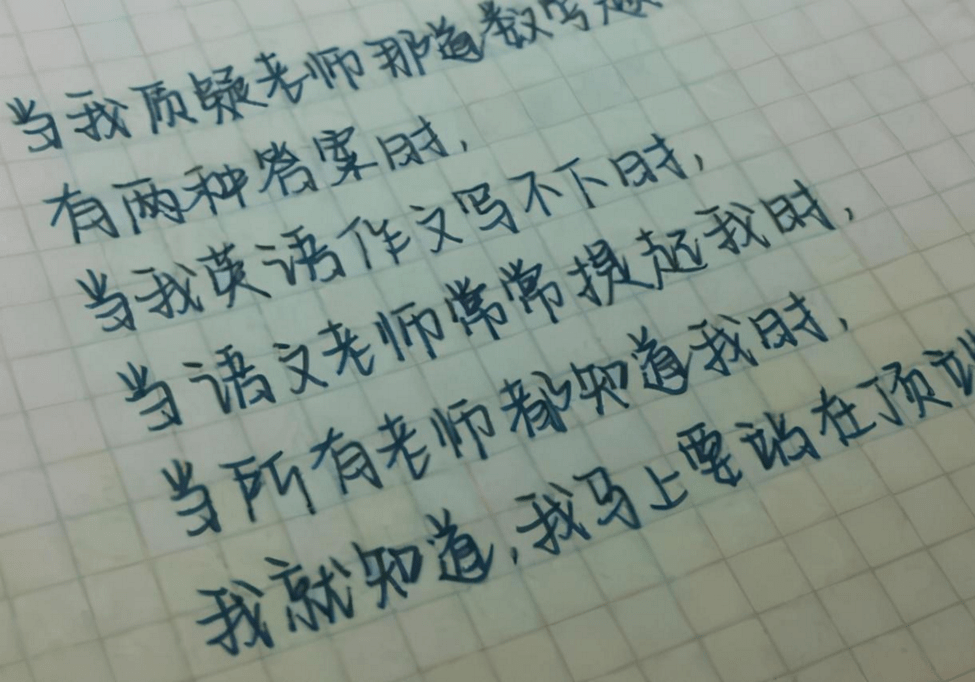 当我质疑老师那道数学题
有两种答案时,
当我英语作文写不下时,
当语文老师常常提起我时,
当所有老师都知道我时,
我就知道,我马上要站在顶